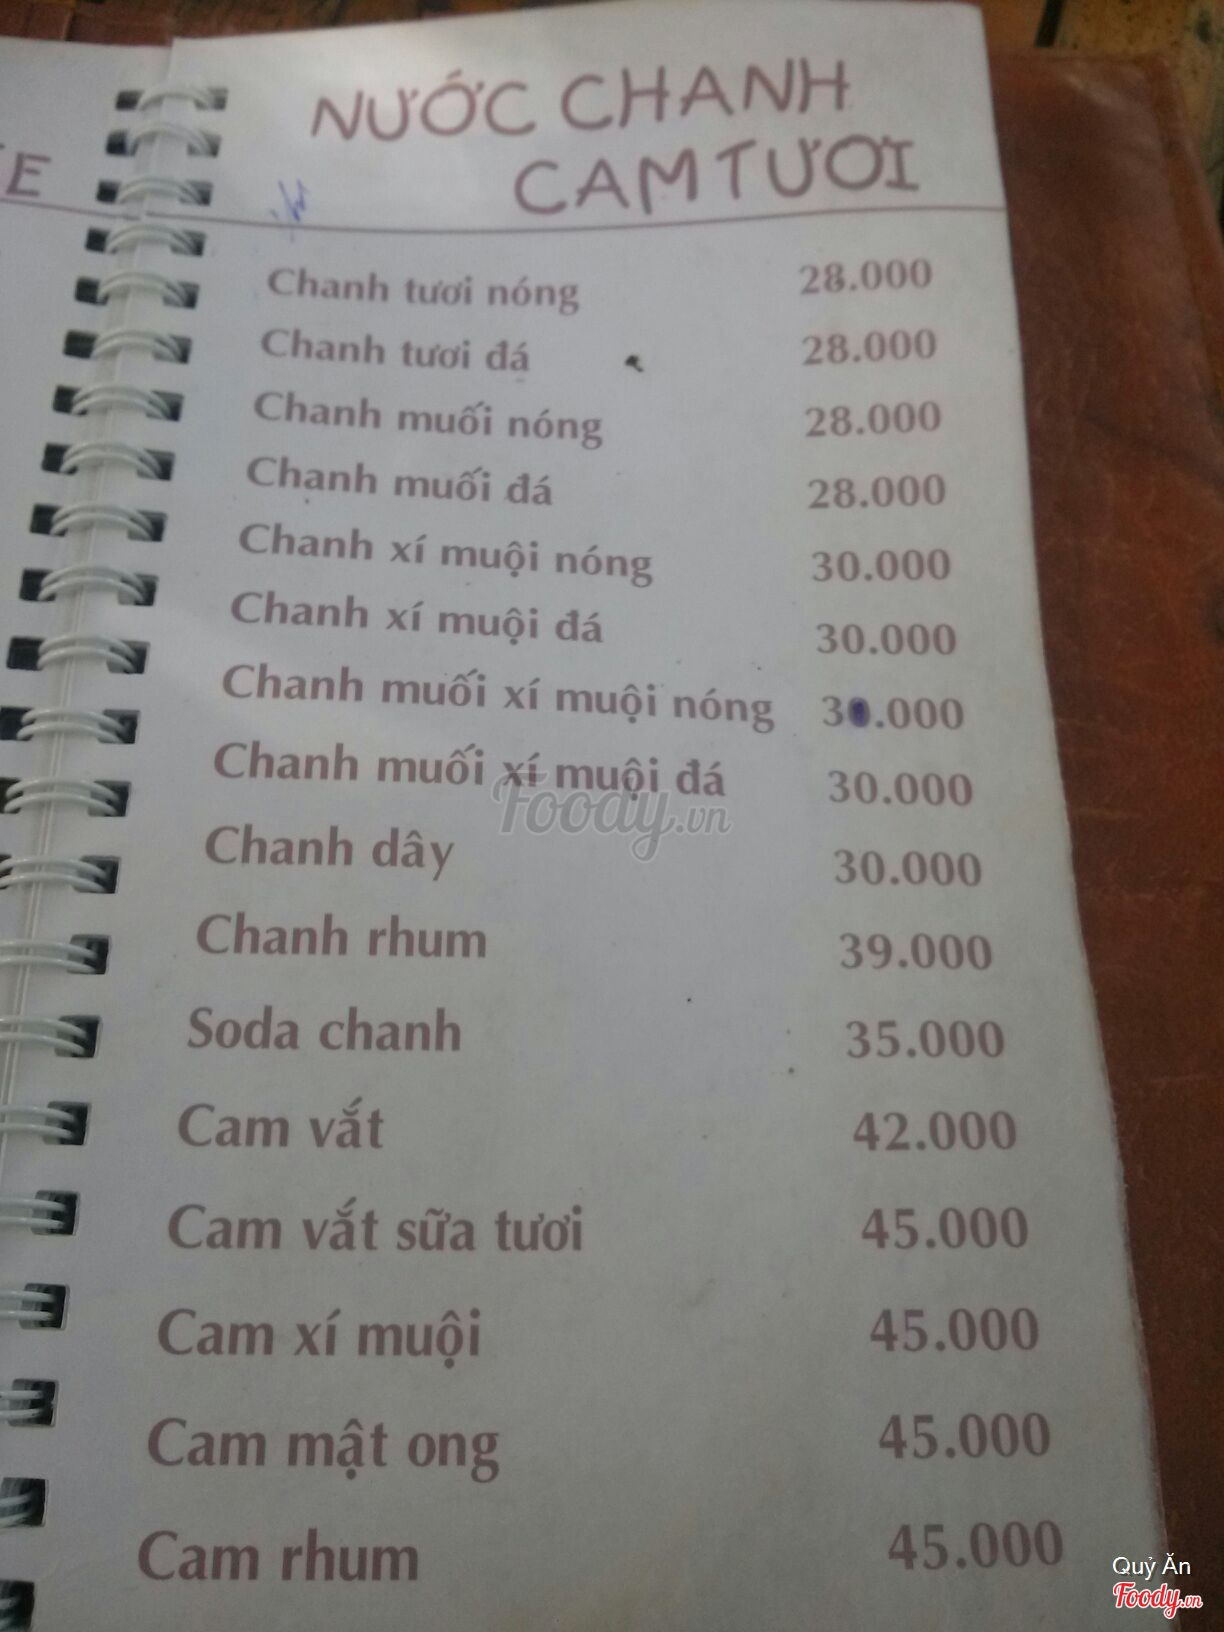 E
NƯỚC CHANH
CAM TƯƠI
Chanh tươi nóng 28.000
Chanh tươi đá 28.000
Chanh muối nóng 28.000
Chanh muối đá 28.000
Chanh xí muội nóng 30.000
Chanh xí muội đá 30.000
Chanh muối xí muội nóng 30.000
Chanh muối xí muội đá 30.000
Foody.vn
Chanh dây 30.000
Chanh rhum 39.000
Soda chanh 35.000
Cam vắt 42.000
Cam vắt sữa tươi 45.000
Cam xí muội 45.000
Cam mật ong 45.000
Cam rhum 45.000
Quỷ Ăn
Foody.vn